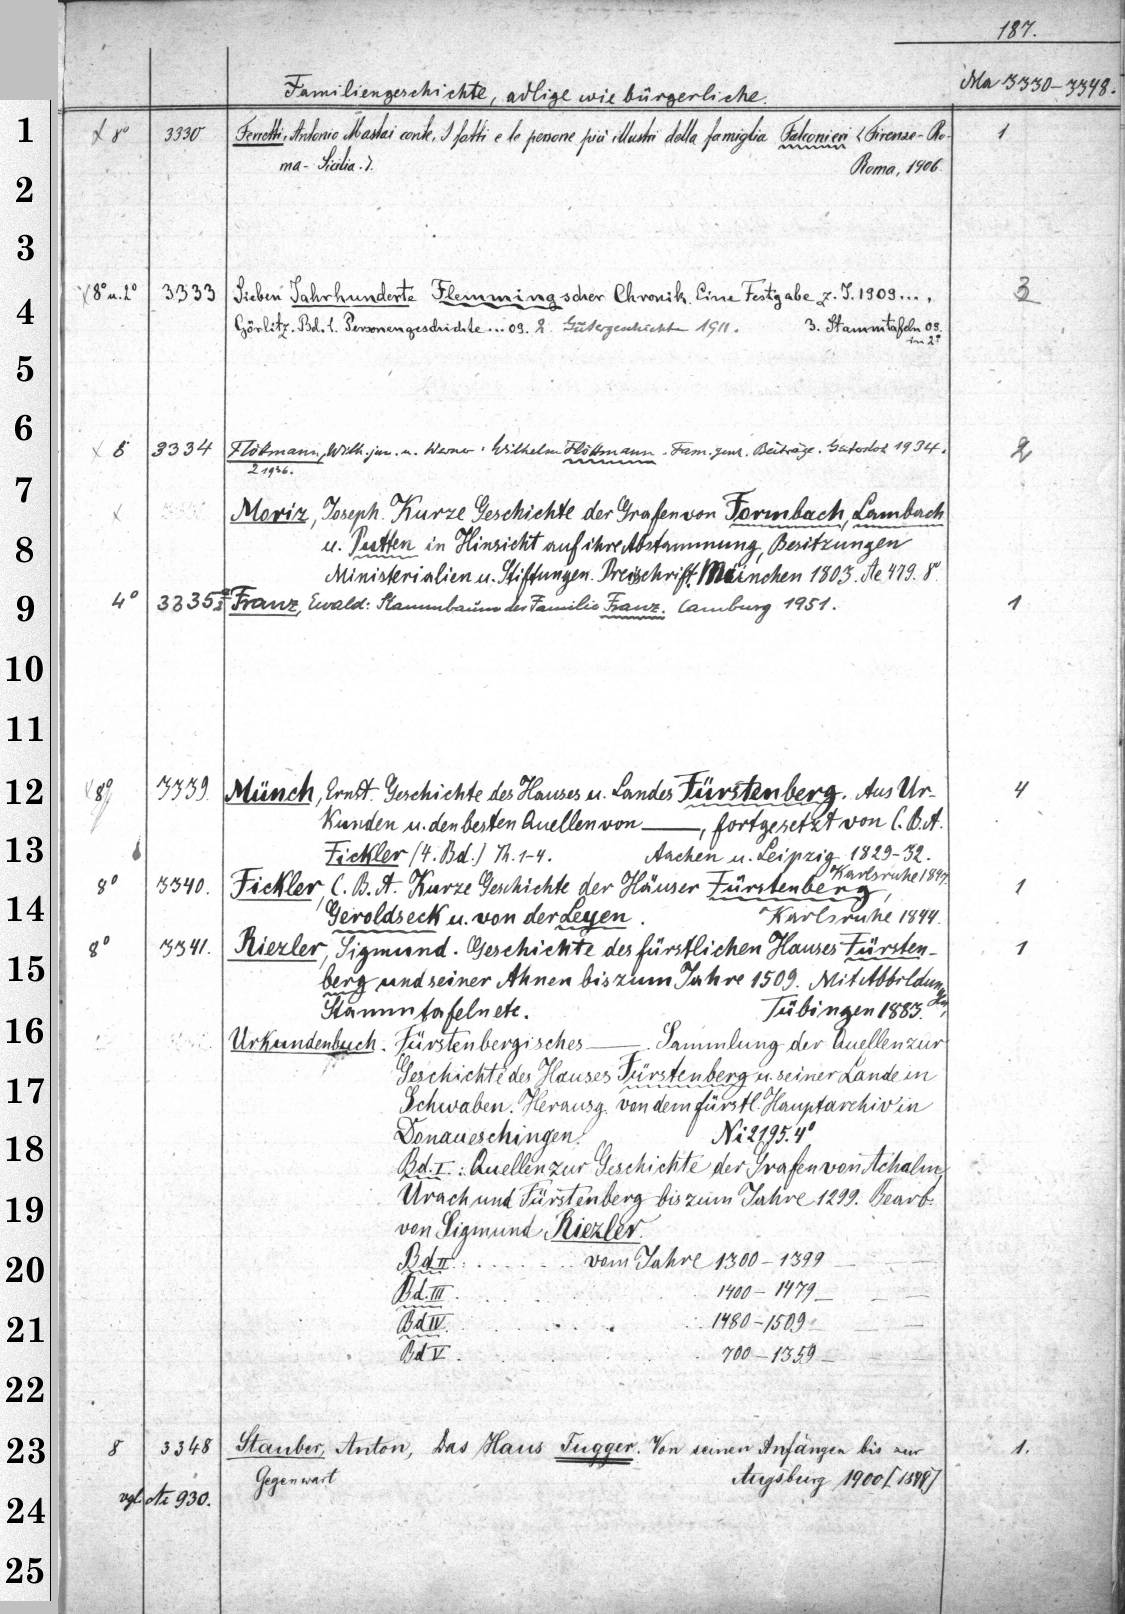 187.
Familiengeschichte, adlige wie bürgerliche.
Ma 3330-3348.
x 8° 3330 Ferretti, Antonio Mastai conte, I fatti e le persone più illustri della famiglia Falconieri (Firenze-Ro- 1
ma- Sicilia.). Roma, 1906.
x 8° u. 2° 3333 Sieben Jahrhunderte Flemmingscher Chronik. Eine Festgabe z. J. 1909.... 3
Görlitz. Bd. 1. Personengeschichte... 09. 2. Gütergeschichte 1911. 3. Stammtafeln 09.
in 2°
x 8 3334 Flöttmann, Wilh. jun. u. Werner: Wilhelm Flöttmann. Fam.gesch. Beiträge. Gütersloh 1934. 2
2 1936.
x Moriz, Joseph. Kurze Geschichte der Grafen von Formbach, Lambach
u. Putten in Hinsicht auf ihre Abstammung, Besitzungen
Ministerialien u. Stiftungen. Preisschrift. München 1803. Ae 479. 8°
4° 3335 Franz, Ewald: Stammbaum der Familie Franz. Camburg 1951. 1
x 8° 3339. Münch, Ernst. Geschichte des Hauses u. Landes Fürstenberg. Aus Ur- 4
kunden u. den besten Quellen von ——, fortgesetzt von C. B. A.
Fickler (4. Bd.) Th. 1-4. Aachen u. Leipzig 1829-32.
Karlsruhe 1847.
8° 3340. Fickler, C. B. A. Kurze Geschichte der Häuser Fürstenberg, 1
Geroldseck u. von der Leyen. Karlsruhe 1844.
8° 3341. Riezler, Sigmund. Geschichte des fürstlichen Hauses Fürsten- 1
berg und seiner Ahnen bis zum Jahre 1509. Mit Abbildungen,
Stammtafeln etc. Tübingen 1883.
Urkundenbuch. Fürstenbergisches ——. Sammlung der Quellen zur
Geschichte des Hauses Fürstenberg u. seiner Lande in
Schwaben. Herausg. von dem fürstl. Hauptarchiv in
Donaueschingen. Ni 2195. 4°
Bd. I.: Quellen zur Geschichte der Grafen von Achalm,
Urach und Fürstenberg bis zum Jahre 1299. Bearb.
von Sigmund Riezler.
Bd II: . . . . . . vom Jahre 1300-1399 — — —
Bd. III. . . . . 1400-1479 — — —
Bd IV. . . . . 1480-1509 — —
Bd V. . . . . 700-1359 — — —
8 3348 Stauber, Anton, Das Haus Fugger. Von seinen Anfängen bis zur 1.
Gegenwart Augsburg 1900 [1899]
vgl. Ai 930.
1
2
3
4
5
6
7
8
9
10
11
12
13
14
15
16
17
18
19
20
21
22
23
24
25